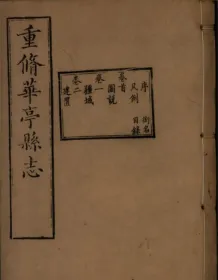 重脩華亭縣志
序 銜名
凡例 目錄
卷首
圖說
卷一
疆域
卷二
建置